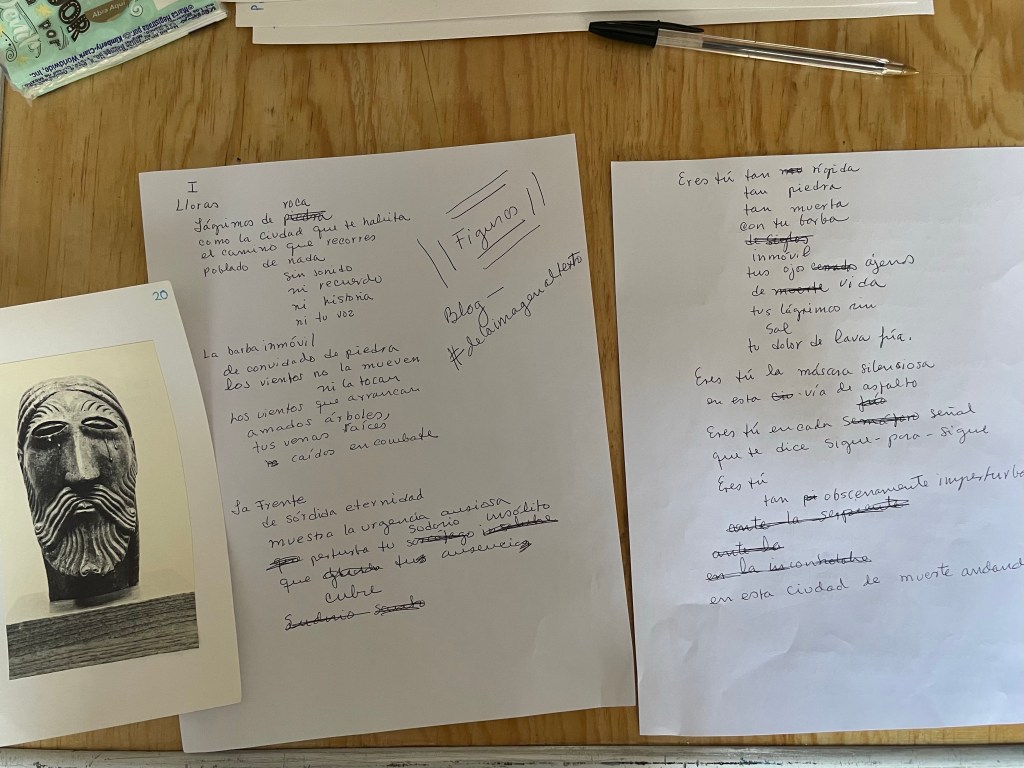 Abra Aquí
por
®Marca Registrada por Kimberly-Clark Worldwide, Inc.
20
I
Lloras
roca
lágrimas de piedra
como la ciudad que te habita
el camino que recorres
poblado de nada
sin sonido
ni recuerdo
ni historia
ni tu voz
La barba inmóvil
de convidado de piedra
los vientos no la mueven
ni la tocan
Los vientos que arrancan
amados árboles,
tus venas raíces
caídos en combate
La Frente
de sórdida eternidad
muestra la urgencia ansiosa
perturba tu sarcófago sudario insólito
que tus ausencias
cubre
Sudario
Figuras
Blog —
#delaimagenaltexto
Eres tú tan rígida
tan piedra
tan muerta
con tu barba
de siglos
inmóvil
tus ojos ajenos
de muerte vida
tus lágrimas sin
sal
tu dolor de lava fría.
Eres tú la máscara silensiosa
en esta vía de asfalto
Eres tú en cada semáforo señal
que te dice sigue-para-sigue
Eres tú
tan obscenamente imperturba
ante la serpiente
ante la
en la
en esta ciudad de muerte andand